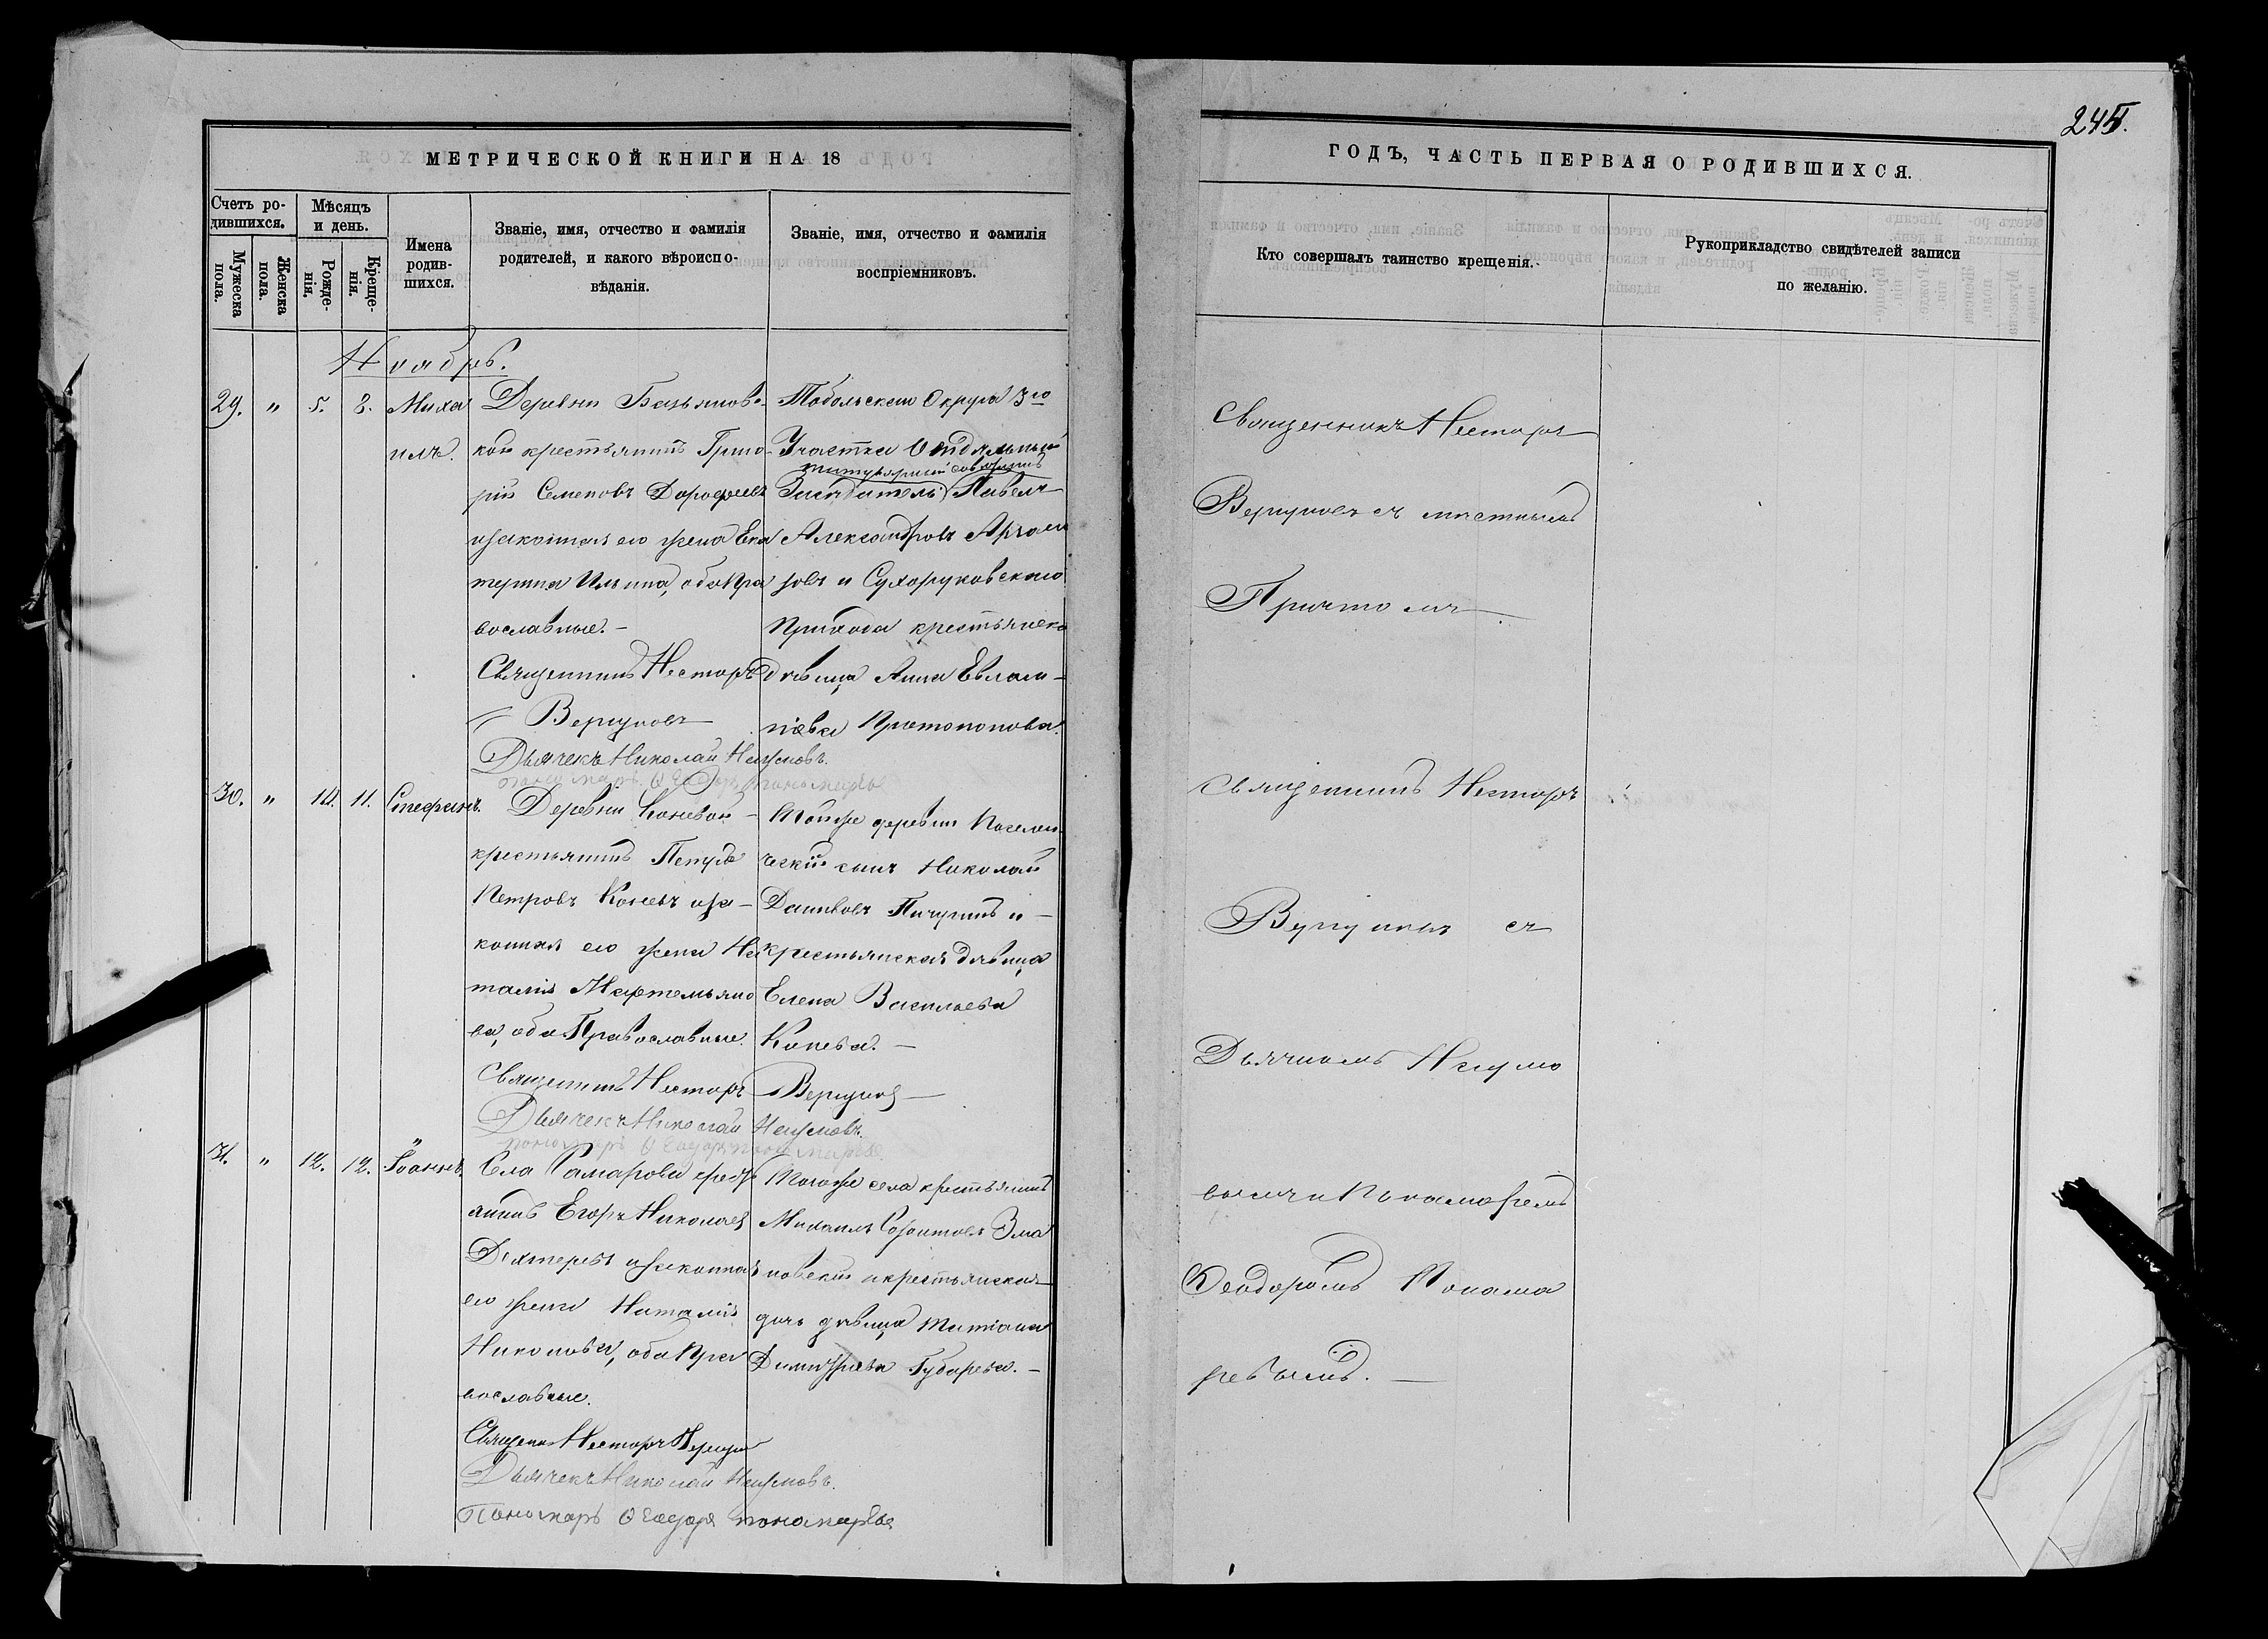 245.
МЕТРИЧЕСКОЙ КНИГИ НА 18
ГОДЪ, ЧАСТЬ ПЕРВАЯ О РОДИВШИХСЯ.
Счетъ ро-
дившихся.
Мужеска
пола.
Женска
пола.
Мѣсяцъ
и день.
Рожде-
нія.
Креще-
нія.
Имена
родив-
шихся.
Званіе, имя, отчество и фамилія
родителей, и какого вѣроиспо-
вѣданія.
Званіе, имя, отчество и фамилія
воспріемниковъ.
Кто совершалъ таинство крещенія.
Рукоприкладство свидѣтелей записи
по желанію.
Ноябрь.
29. " 5. 8. Миха
илъ.
Деревни
кой крестьянинъ Григо-
рій Семеновъ Дорофеевъ
и законная его жена Ека
терина Ильина, оба Пра
вославные.—
Священникъ Несторъ
Вергуновъ
Дьячекъ Николай Наумовъ.
пономарь Ѳеодоръ пономаревъ
Тобольскаго Округа 3го
Участка Отдѣльный
титулярный совѣтникъ
Засѣдатель Павелъ
Александровъ
и Сухоруковскаго
прихода крестьянска
дѣвица Анна Евлам-
піева Протопопова.
Священникъ Несторъ
Вергуновъ съ мѣстнымъ
Причтомъ
30. " 10. 11. Стефанъ.
Деревни Коневой
крестьянинъ Петръ
Петровъ Коневъ и за-
конная его жена На
талія Мартемьяно
ва, оба Православные.
Священникъ Несторъ Вергуновъ
Дьячекъ Николай Наумовъ.
пономарь Ѳеодоръ пономаревъ
Той же деревни Поселен-
ческій сынъ Николай
Пичугинъ и —
крестьянская дѣвица
Елена Васильева
Конева.—
Священникъ Несторъ
Вергуновъ съ
Дьячкомъ Наумо
вымъ и Пономаремъ
Ѳеодоромъ Понома
ревымъ.—
31. " 12. 12. Іоаннъ.
Села Самарова
Егоръ Николаевъ
и законная
его жена Наталія
Никонова, оба Пра
вославные.
Священникъ Несторъ Вергуновъ
Дьячекъ Николай Наумовъ.
Пономарь Ѳеодоръ пономаревъ
Того же села крестьянинъ
Михаилъ Зма
новскій и крестьянская
дочь дѣвица Татіана
Димитріева Губарева.—